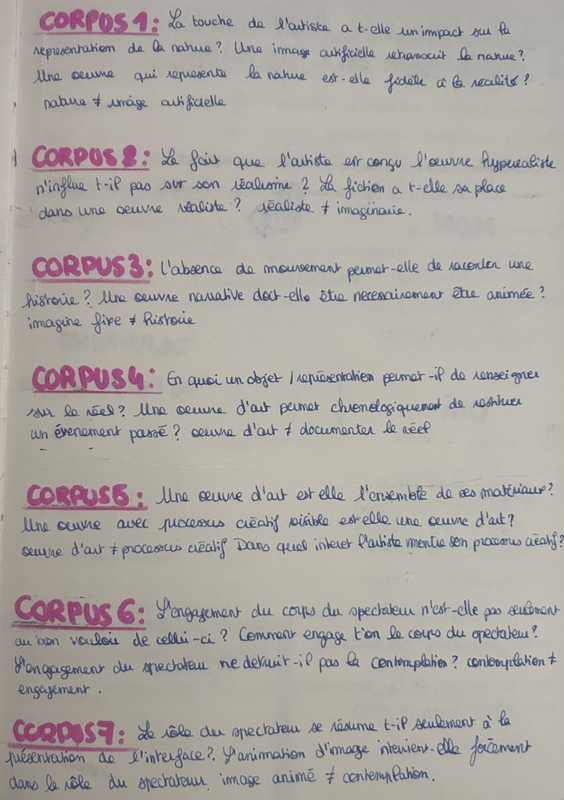 CORPUS 1: La touche de l'artiste a t-elle un impact sur la
représentation de la nature? Une image artificielle retranscrit la nature?
Une oeuvre qui représente la nature est-elle fidèle à la réalité?
nature ≠ image artificielle
CORPUS 2: Le fait que l'artiste est conçu l'oeuvre hyperéaliste
n'influe t-il pas sur son réalisme? La fiction a t-elle sa place
dans une oeuvre réaliste? réaliste ≠ imaginaire.
CORPUS 3: l'absence de mouvement permet-elle de raconter une
histoire? Une oeuvre narrative doit-elle être necessairement être animée?
imagine fixe ≠ histoire
CORPUS 4: En quoi un objet / représentation permet-il de renseigner
sur le réel? Une oeuvre d'art permet chronologiquement de restituer
un évenement passé? oeuvre d'art ≠ documenter le réel
CORPUS 5: Une oeuvre d'art est elle l'ensemble de ses matériaux?
Une oeuvre avec processus créatif visible est elle une oeuvre d'art?
oeuvre d'art ≠ processus créatif Dans quel interet l'artiste montre son processus créatif?
CORPUS 6: L'engagement du corps du spectateur n'est-elle pas seulement
au bon vouloir de cellui-ci? Comment engage t'on le corps du spectateur?
L'engagement du spectateur ne detruit-il pas la contemplation? contemplation ≠
engagement.
CORPUS 7: Le rôle du spectateur se résume t-il seulement à la
présentation de l'interface? L'animation d'image intervient-elle forcément
dans le rôle du spectateur. image animé ≠ contemplation.